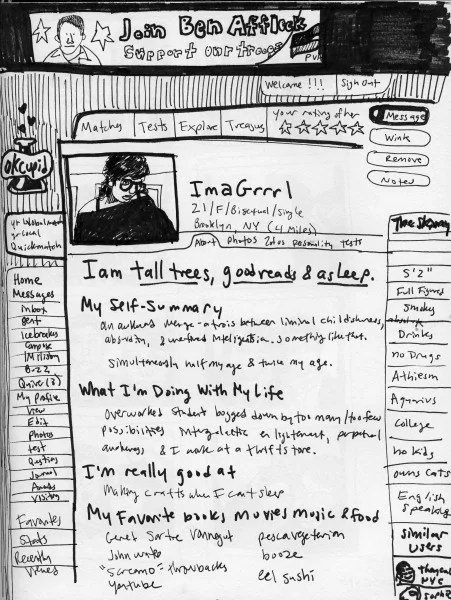 Join Ben Affleck
Support our troops
Welcome !!! Sign Out
Matches Tests Explore Treasures your rating of her
Message
Wink
Remove
Notes
okcupid
ImaGrrrl
21/F/Bisexual/Single
Brooklyn, NY (4 Miles)
About photos personality tests
yr
or Local
Quickmatch
Home
Messages
inbox
sent
Icebreaks
compose
IM History
Quiver (3)
My Profile
View
Edit
Photos
test
Questions
Journal
Awards
Visitors
Favorites
Stats
Recently
Views
I am tall trees, good reads & asleep.
My Self-Summary
an awkward between liminal childishness,
absurdity, & something like that.
simultaneously half my age & twice my age.
What I'm Doing With My Life
Overworked student bogged down by too many/too few
possibilities perpetual
awkness & I work at a thrift store.
I'm really good at
Making crafts when I can't sleep
My Favorite books movies music & food
Genet Sartre Vonnegut pescavegetarian
John booze
"Screamo" throwbacks eel sushi
Youtube
The Skinny
5'2"
Full Figured
Smokes
Drinks
no Drugs
Athiesm
Aquarius
College
no kids
owns Cats
English
speaking
similar
users
NYC